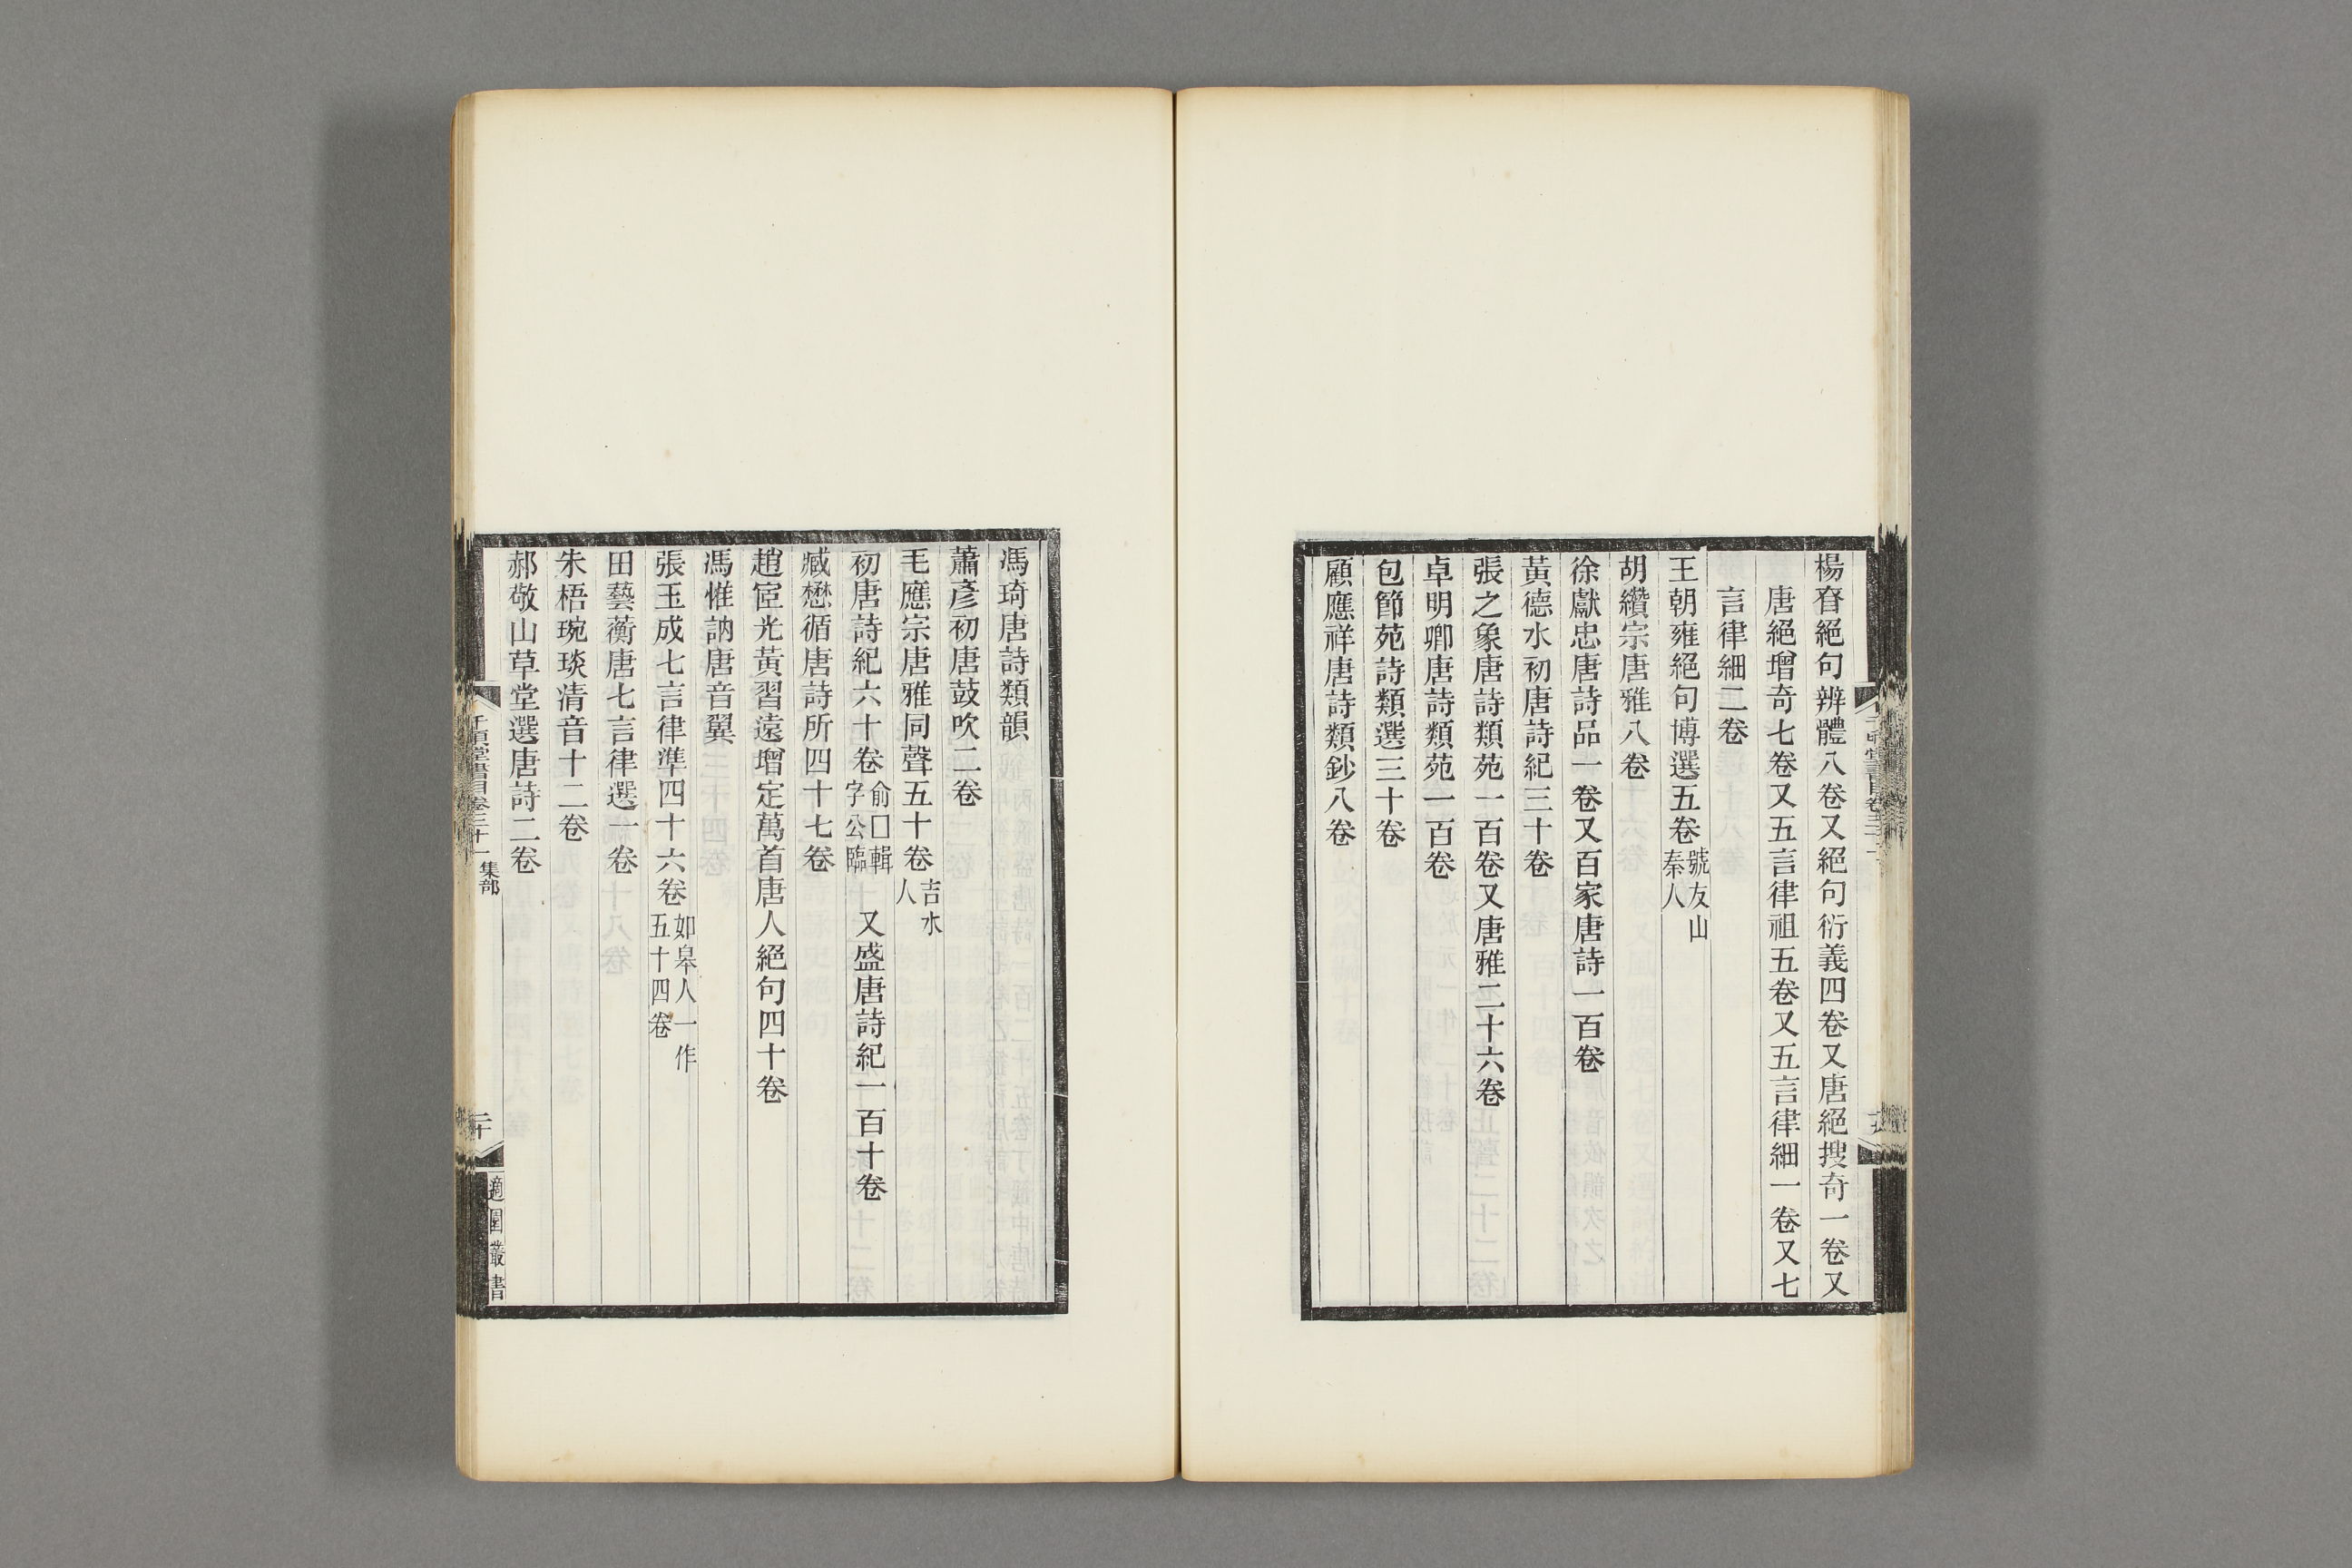 楊眘絕句辨體八卷又絕句衍義四卷又唐絕搜奇一卷又
唐絕增奇七卷又五言律祖五卷又五言律細一卷又七
言律細二卷
王朝雍絕句博選五卷號友山秦人
胡纘宗唐雅八卷
徐獻忠唐詩品一卷又百家唐詩一百卷
黃德水初唐詩紀三十卷
張之象唐詩類苑一百卷又唐雅二十六卷
卓明卿唐詩類苑一百卷
包節苑詩類選三十卷
顧應祥唐詩類鈔八卷
馮琦唐詩類韻
蕭彥初唐鼓吹二卷
毛應宗唐雅同聲五十卷吉水人
初唐詩紀六十卷俞囗輯字公臨 又盛唐詩紀一百十卷
臧懋循唐詩所四十七卷
趙宧光黃習遠增定萬首唐人絕句四十卷
馮惟訥唐音翼
張玉成七言律準四十六卷如皋人一作五十四卷
田藝蘅唐七言律選一卷
朱梧琬琰清音十二卷
郝敬山草堂選唐詩二卷
千頃堂書目卷三十一 集部
二十
適園叢書